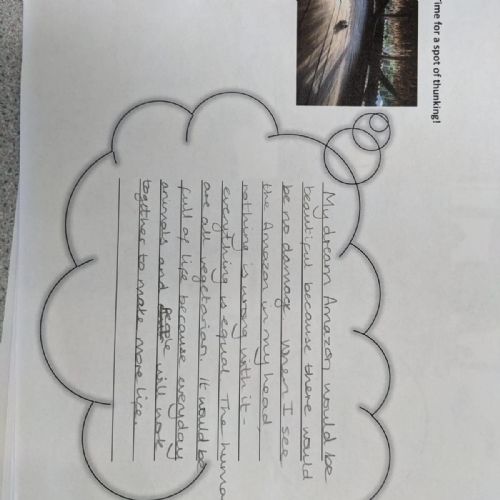 Time for a spot of thunking!
My dream Amazon would be
beautiful because there would
be no damage. When I see
the Amazon in my head,
nothing is wrong with it -
everything is equal. The huma
are all vegetarian. It would be
full of life because everyday
animals and people will work
together to make more life.